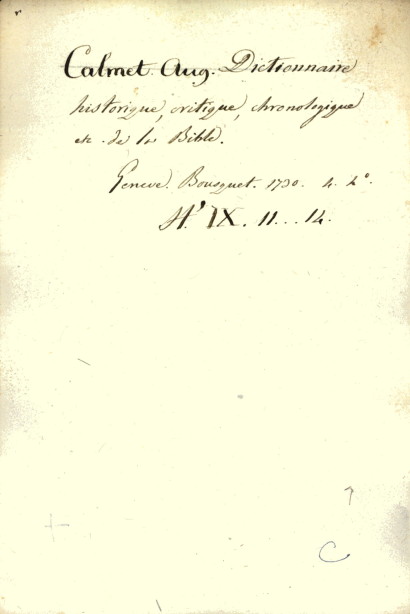 Calmet. Aug. Dictionnaire
historique, critique, chronologique
etc. de la Bible.
Geneve. Bousquet. 1730. 4. 4°.
IX. 11...14.
C